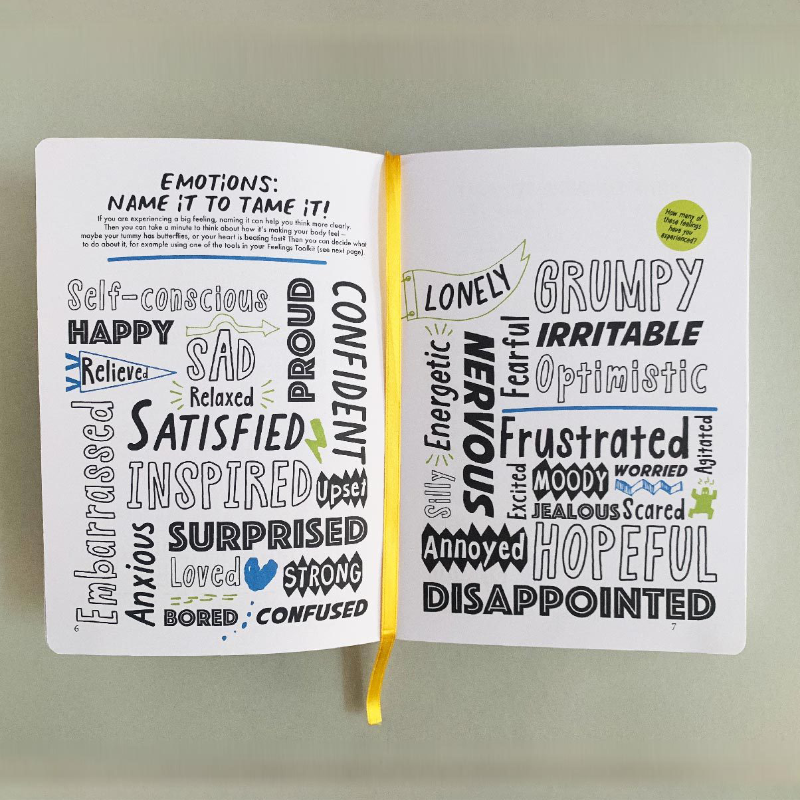 EMOTIONS:
NAME IT TO TAME IT!
If you are experiencing a big feeling, naming it can help you think more clearly.
Then you can take a minute to think about how it's making your body feel –
maybe your tummy has butterflies, or your heart is beating fast? Then you can decide what
to do about it, for example using one of the tools in your Feelings Toolkit (see next page).
Self-conscious
HAPPY
PROUD
CONFIDENT
Relieved
SAD
Relaxed
SATISFIED
Embarrassed
INSPIRED
Upset
Anxious
SURPRISED
Loved
STRONG
BORED
CONFUSED
6
How many of
these feelings
have you
experienced?
LONELY
GRUMPY
IRRITABLE
Fearful
Optimistic
Energetic
NERVOUS
Frustrated
Agitated
Silly
Excited
MOODY
WORRIED
JEALOUS
Scared
Annoyed
HOPEFUL
DISAPPOINTED
7